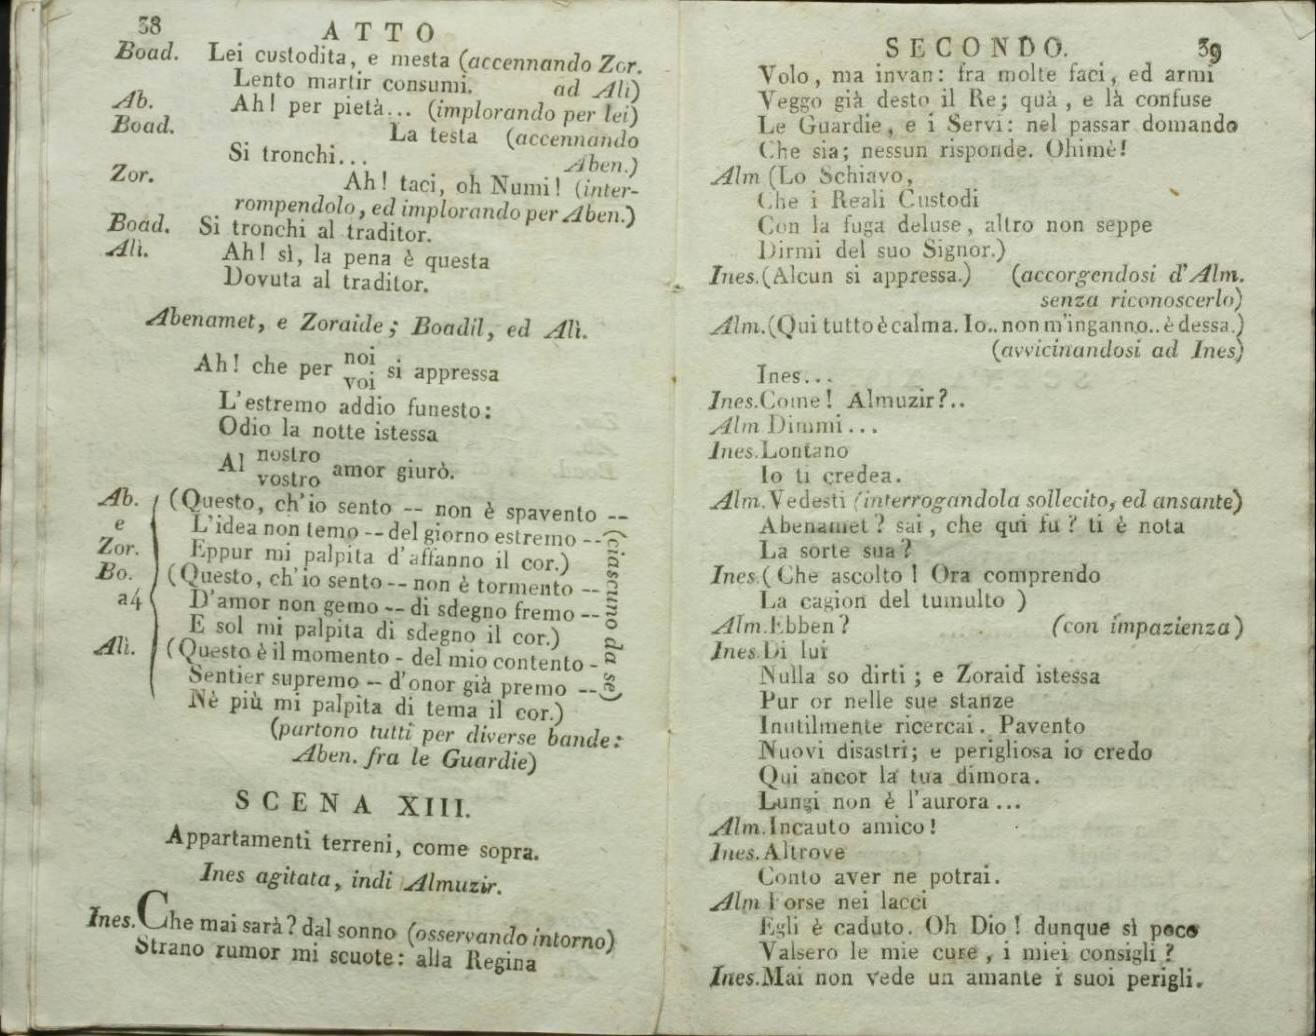 38
ATTO
Boad. Lei custodita, e mesta (accennando Zor.
Lento martir consumi. ad Alì)
Ab. Ah! per pietà... (implorando per lei)
Boad. La testa (accennando
Si tronchi... Aben.)
Zor. Ah! taci, oh Numi! (inter-
rompendolo, ed implorando per Aben.)
Boad. Si tronchi al traditor.
Alì. Ah! sì, la pena è questa
Dovuta al traditor.
Abenamet, e Zoraide; Boadil, ed Alì.
Ah! che per noi
voi si appressa
L'estremo addio funesto:
Odio la notte istessa
Al nostro
vostro amor giurò.
Ab. (Questo, ch'io sento -- non è spavento --
e L'idea non temo -- del giorno estremo --
Zor. Eppur mi palpita d'affanno il cor.)
Bo. (Questo, ch'io sento -- non è tormento --
a4 D'amor non gemo -- di sdegno fremo --
E sol mi palpita di sdegno il cor.)
Alì. (Questo è il momento - del mio contento -
Sentier supremo -- d'onor già premo --
Nè più mi palpita di tema il cor.)
(ciascuno da se)
(partono tutti per diverse bande:
Aben. fra le Guardie)
SCENA XIII.
Appartamenti terreni, come sopra.
Ines agitata, indi Almuzir.
Ines. Che mai sarà? dal sonno (osservando intorno)
Strano rumor mi scuote: alla Regina
SECONDO. 39
Volo, ma invan: fra molte faci, ed armi
Veggo già desto il Re; quà, e là confuse
Le Guardie, e i Servi: nel passar domando
Che sia; nessun risponde. Ohimè!
Alm (Lo Schiavo,
Che i Reali Custodi
Con la fuga deluse, altro non seppe
Dirmi del suo Signor.)
Ines. (Alcun si appressa.) (accorgendosi d'Alm.
senza riconoscerlo)
Alm. (Qui tutto è calma. Io.. non m'inganno.. è dessa.)
(avvicinandosi ad Ines)
Ines...
Ines. Come! Almuzir?..
Alm Dimmi...
Ines. Lontano
Io ti credea.
Alm. Vedesti (interrogandola sollecito, ed ansante)
Abenamet? sai, che qui fu? ti è nota
La sorte sua?
Ines. (Che ascolto! Ora comprendo
La cagion del tumulto)
Alm. Ebben? (con impazienza)
Ines. Di lui
Nulla so dirti; e Zoraid istessa
Pur or nelle sue stanze
Inutilmente ricercai. Pavento
Nuovi disastri; e perigliosa io credo
Qui ancor la tua dimora.
Lungi non è l'aurora...
Alm. Incauto amico!
Ines. Altrove
Conto aver ne potrai.
Alm Forse nei lacci
Egli è caduto. Oh Dio! dunque sì poco
Valsero le mie cure, i miei consigli?
Ines. Mai non vede un amante i suoi perigli.